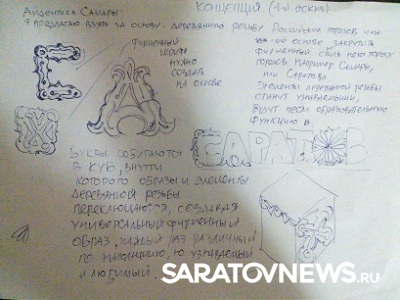 Айдентика Самары.
Концепция. (1-й эскиз)
я предлагаю взять за основу деревянную резьбу Российских городов и на
её основе закрутить
фирменный стиль некоторых
городов. Например Самары,
или Саратова.
Элементы деревянной резьбы
станут узнаваемыми,
будут нести образовательную
функцию и.
Фирменный
шрифт
нужно
создать
на основе
САРАТОВ
Буквы собираются
в куб, внутри
которого образы и элементы
деревянной резьбы
переключаются, создавая
универсальный фирменный
образ, каждый раз различный
по наполнению, но узнаваемый
и любимый.
SARATOVNEWS.RU